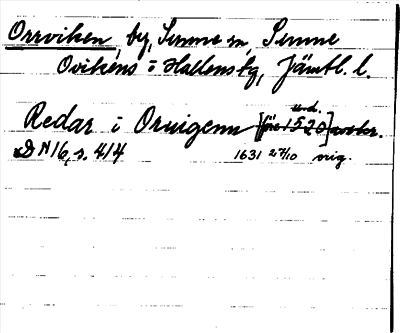 Orrviken, by, Sunne sn, Sunne
Ovikens o Hallens tg, Jämtl. l.
Redar i Oruigenn [före 1520] avskr. u.d.
DN 16, s. 414 1631 27/10 orig.